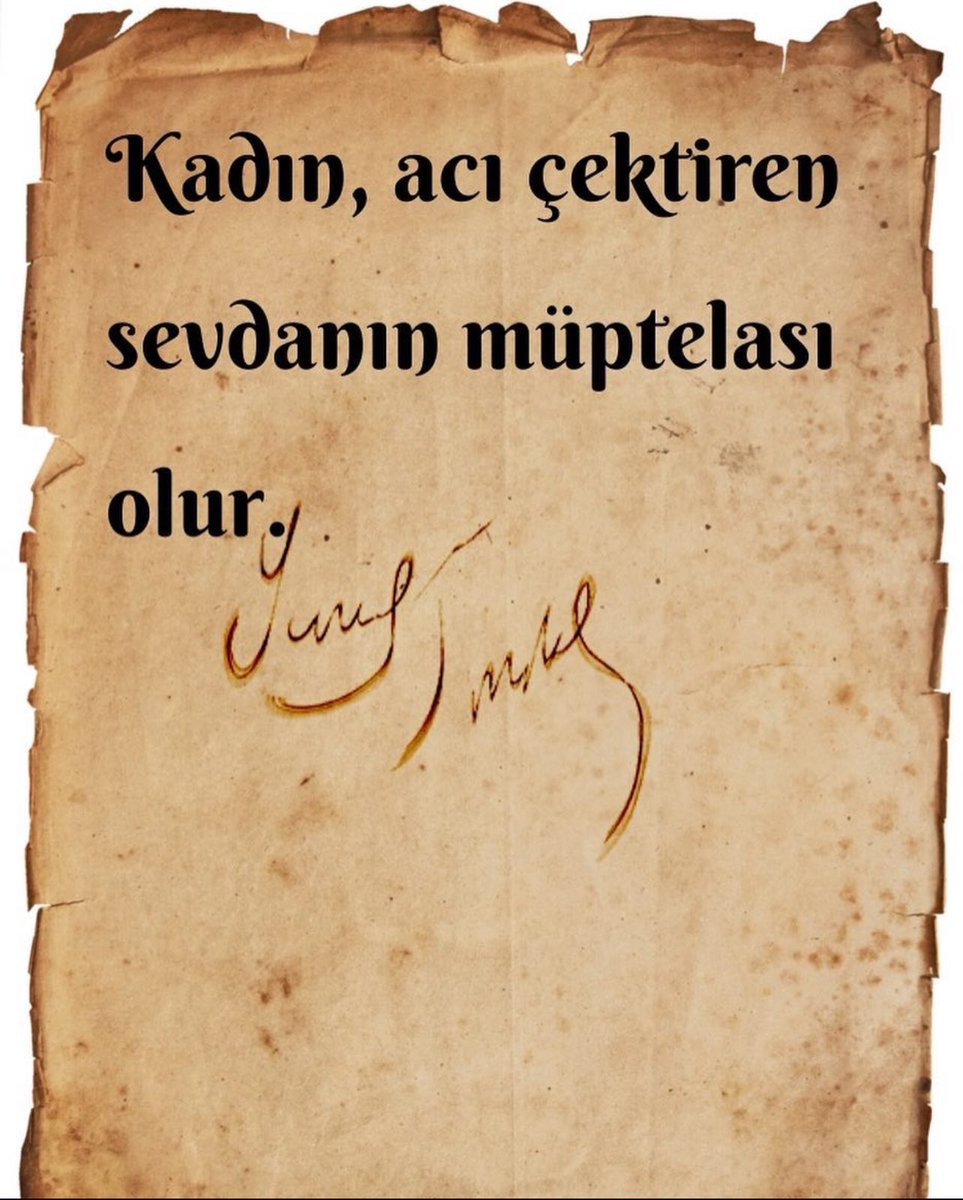 Kadın, acı çektiren
sevdanın müptelası
olur.